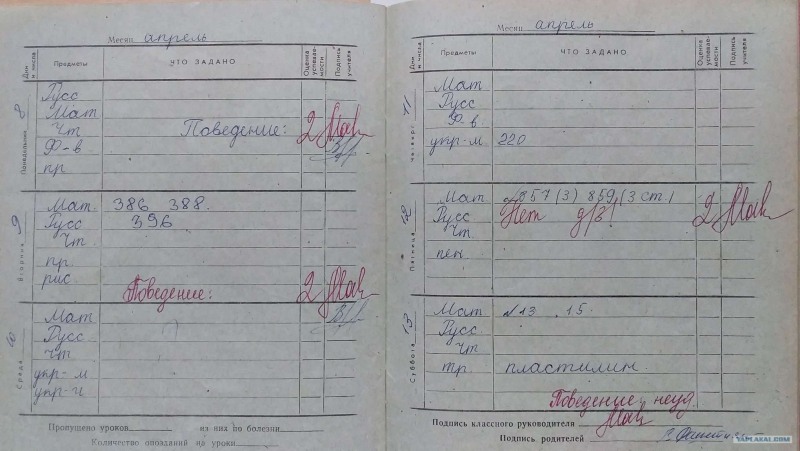 Месяц апрель
Дни и числа Предметы ЧТО ЗАДАНО Оценка успеваемости Подпись учителя
Понедельник 8
Русс
Мат
Чт Поведение: 2
Ф-в
пр
Вторник 9
Мат. 386 388.
Русс 396
Чт
пр.
рис.
Поведение: 2
Среда
Мат
Русс
Чт
укр-м
укр-ч
Пропущено уроков из них по болезни
Количество опозданий на уроки
Месяц апрель
Дни и числа Предметы ЧТО ЗАДАНО Оценка успеваемости Подпись учителя
Четверг 11
Мат
Русс
Ф-в
укр-м 220
Пятница 12
Мат 857 (3) 859 (3 ст.)
Русс Нет д/з! 2
Чт
пен
Суббота 13
Мат №13, 15.
Русс
Чт
тр. пластилин.
Поведение неуд.
Подпись классного руководителя
Подпись родителей
YAPLAKAL.COM